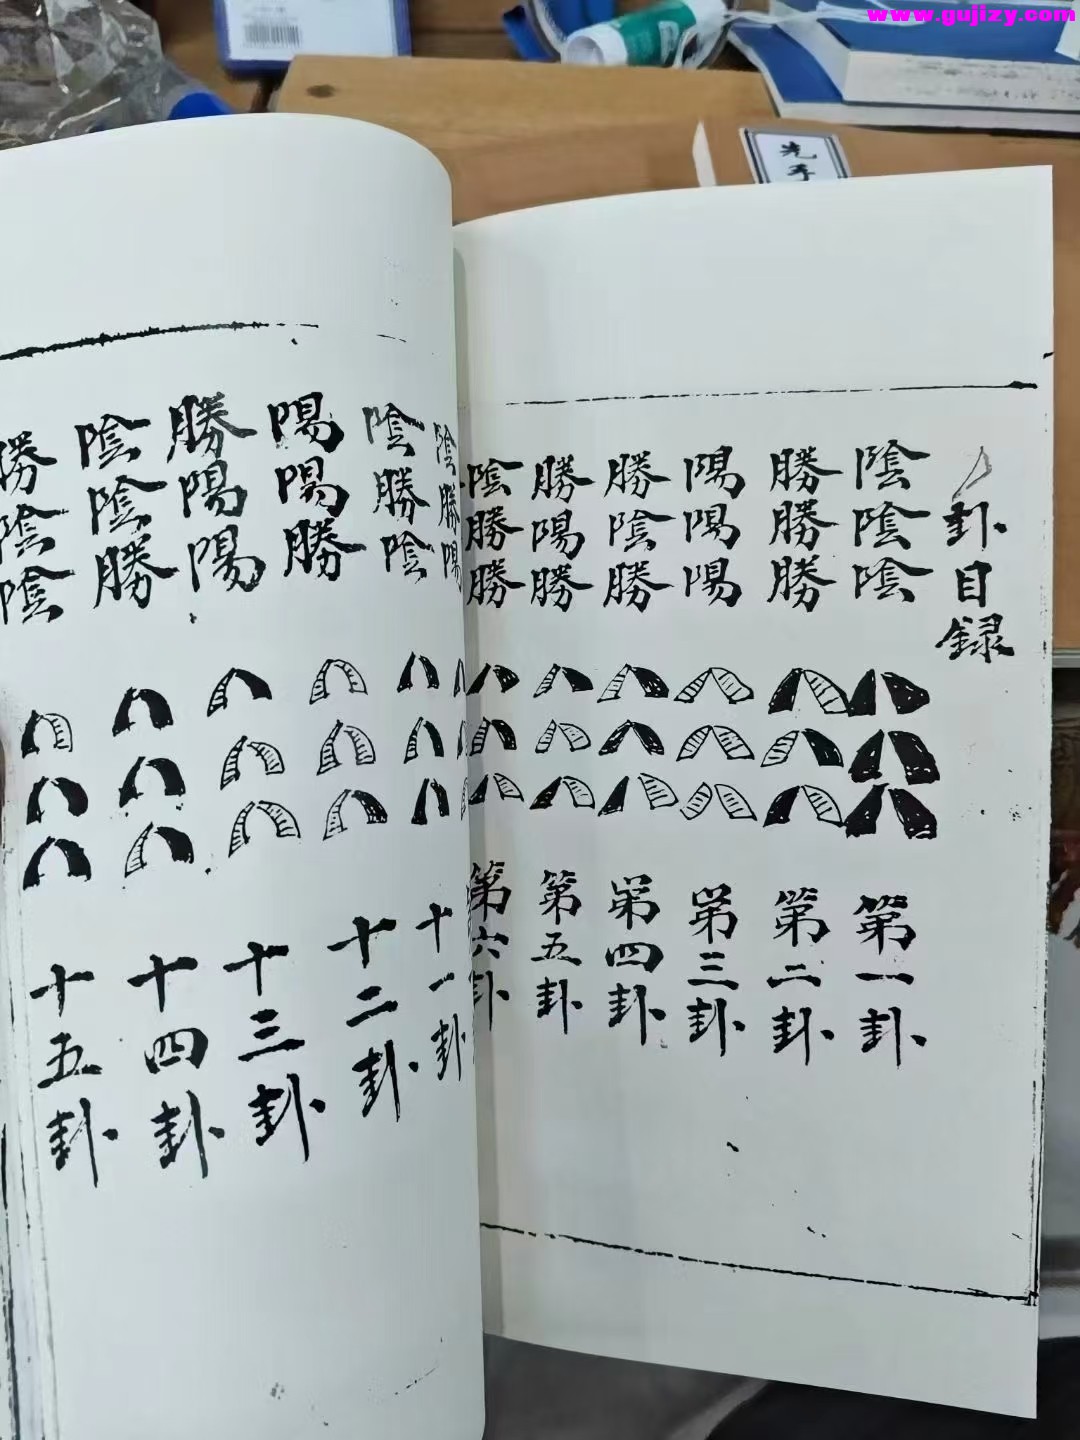 www.gujizy.com
卦目録
陰陰陰 第一卦
勝勝勝 第二卦
陽陽陽 第三卦
勝陰勝 第四卦
勝陽勝 第五卦
陰勝勝 第六卦
陰勝陽
陰勝陰 十一卦
陽陽勝 十二卦
勝陽陽 十三卦
陰陰勝 十四卦
勝陰陰 十五卦